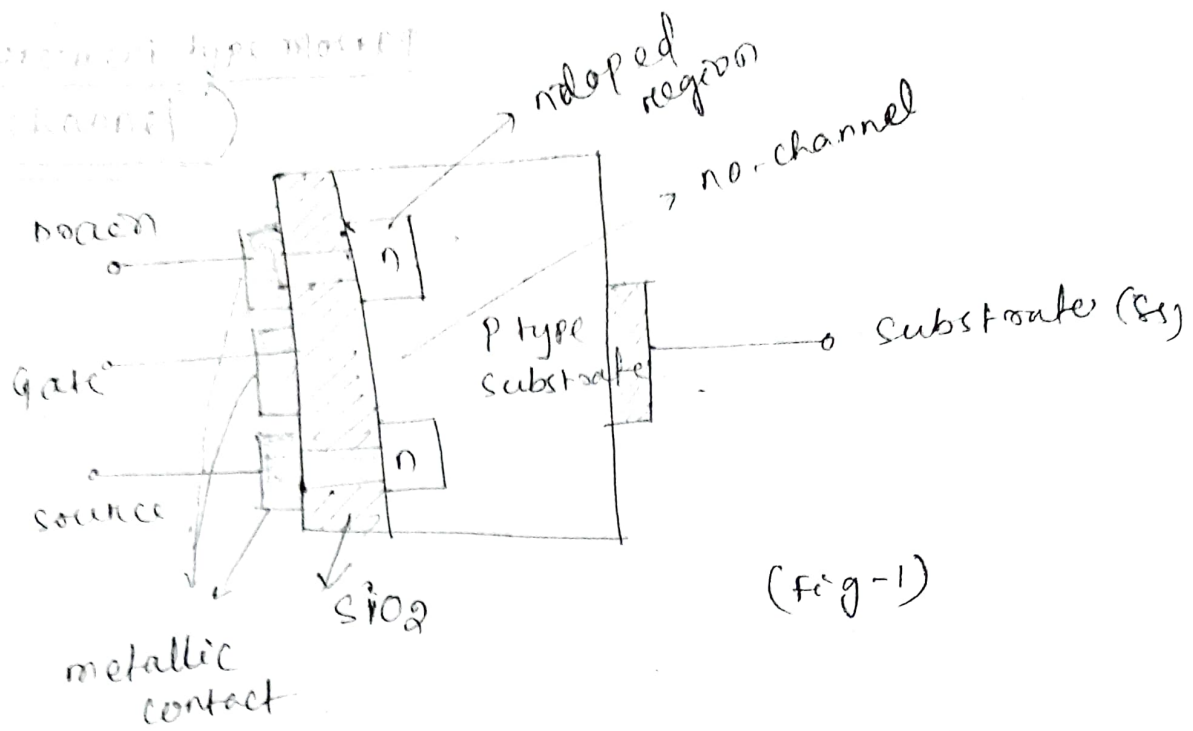 n doped
region
no. channel
Drain
n
P type
substrate
Substrate (SS)
Gate
n
Source
SiO2
(Fig-1)
metallic
contact